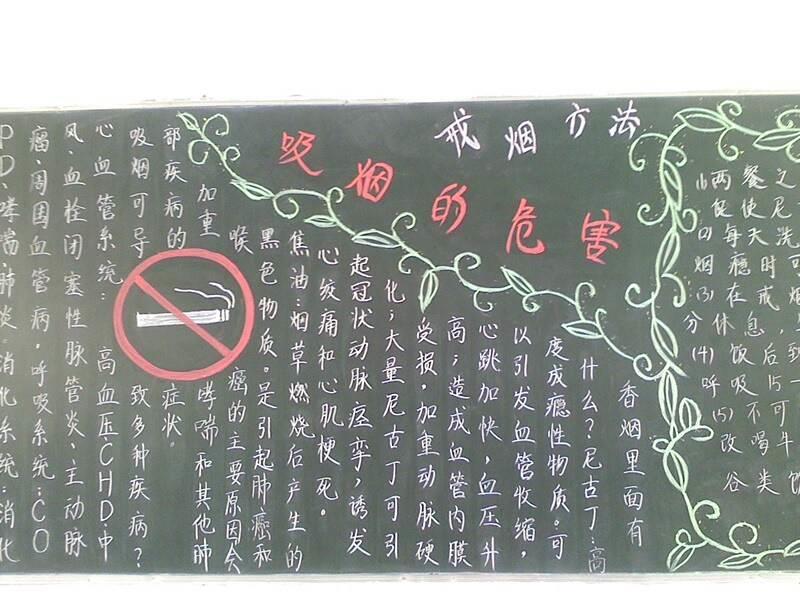 戒烟方法
吸烟的危害
(1)两餐之
使尼
(2)每天洗
烟瘾时可
(3)在戒烟
分休息
(4)饭后
呼吸15
(5)不可
改喝牛
谷类
香烟里面有
什么?尼古丁:高
度成瘾性物质。可
以引发血管收缩,
心跳加快,血压升
高;造成血管内膜
受损,加重动脉硬
化;大量尼古丁可引
起冠状动脉痉挛,诱发
心绞痛和心肌梗死。
焦油:烟草燃烧后产生的
黑色物质。是引起肺癌和
喉癌的主要原因会
加重哮喘和其他肺
部疾病的症状。
吸烟可导致多种疾病?
心血管系统:高血压.CHD.中
风.血栓闭塞性脉管炎.主动脉
瘤.周围血管病。呼吸系统:CO
PD.哮喘肺炎.消化系统:消化